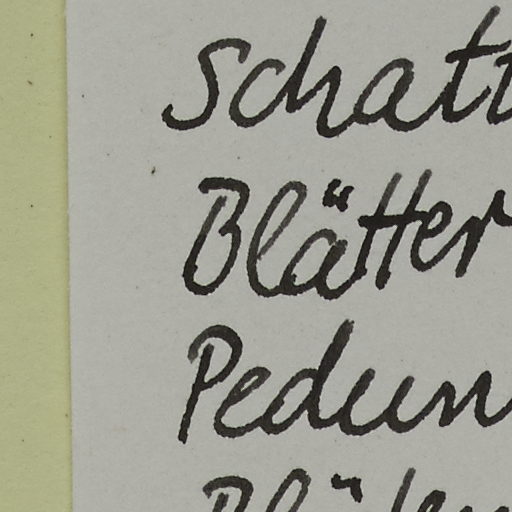 Schatt
Blätter
Pedun